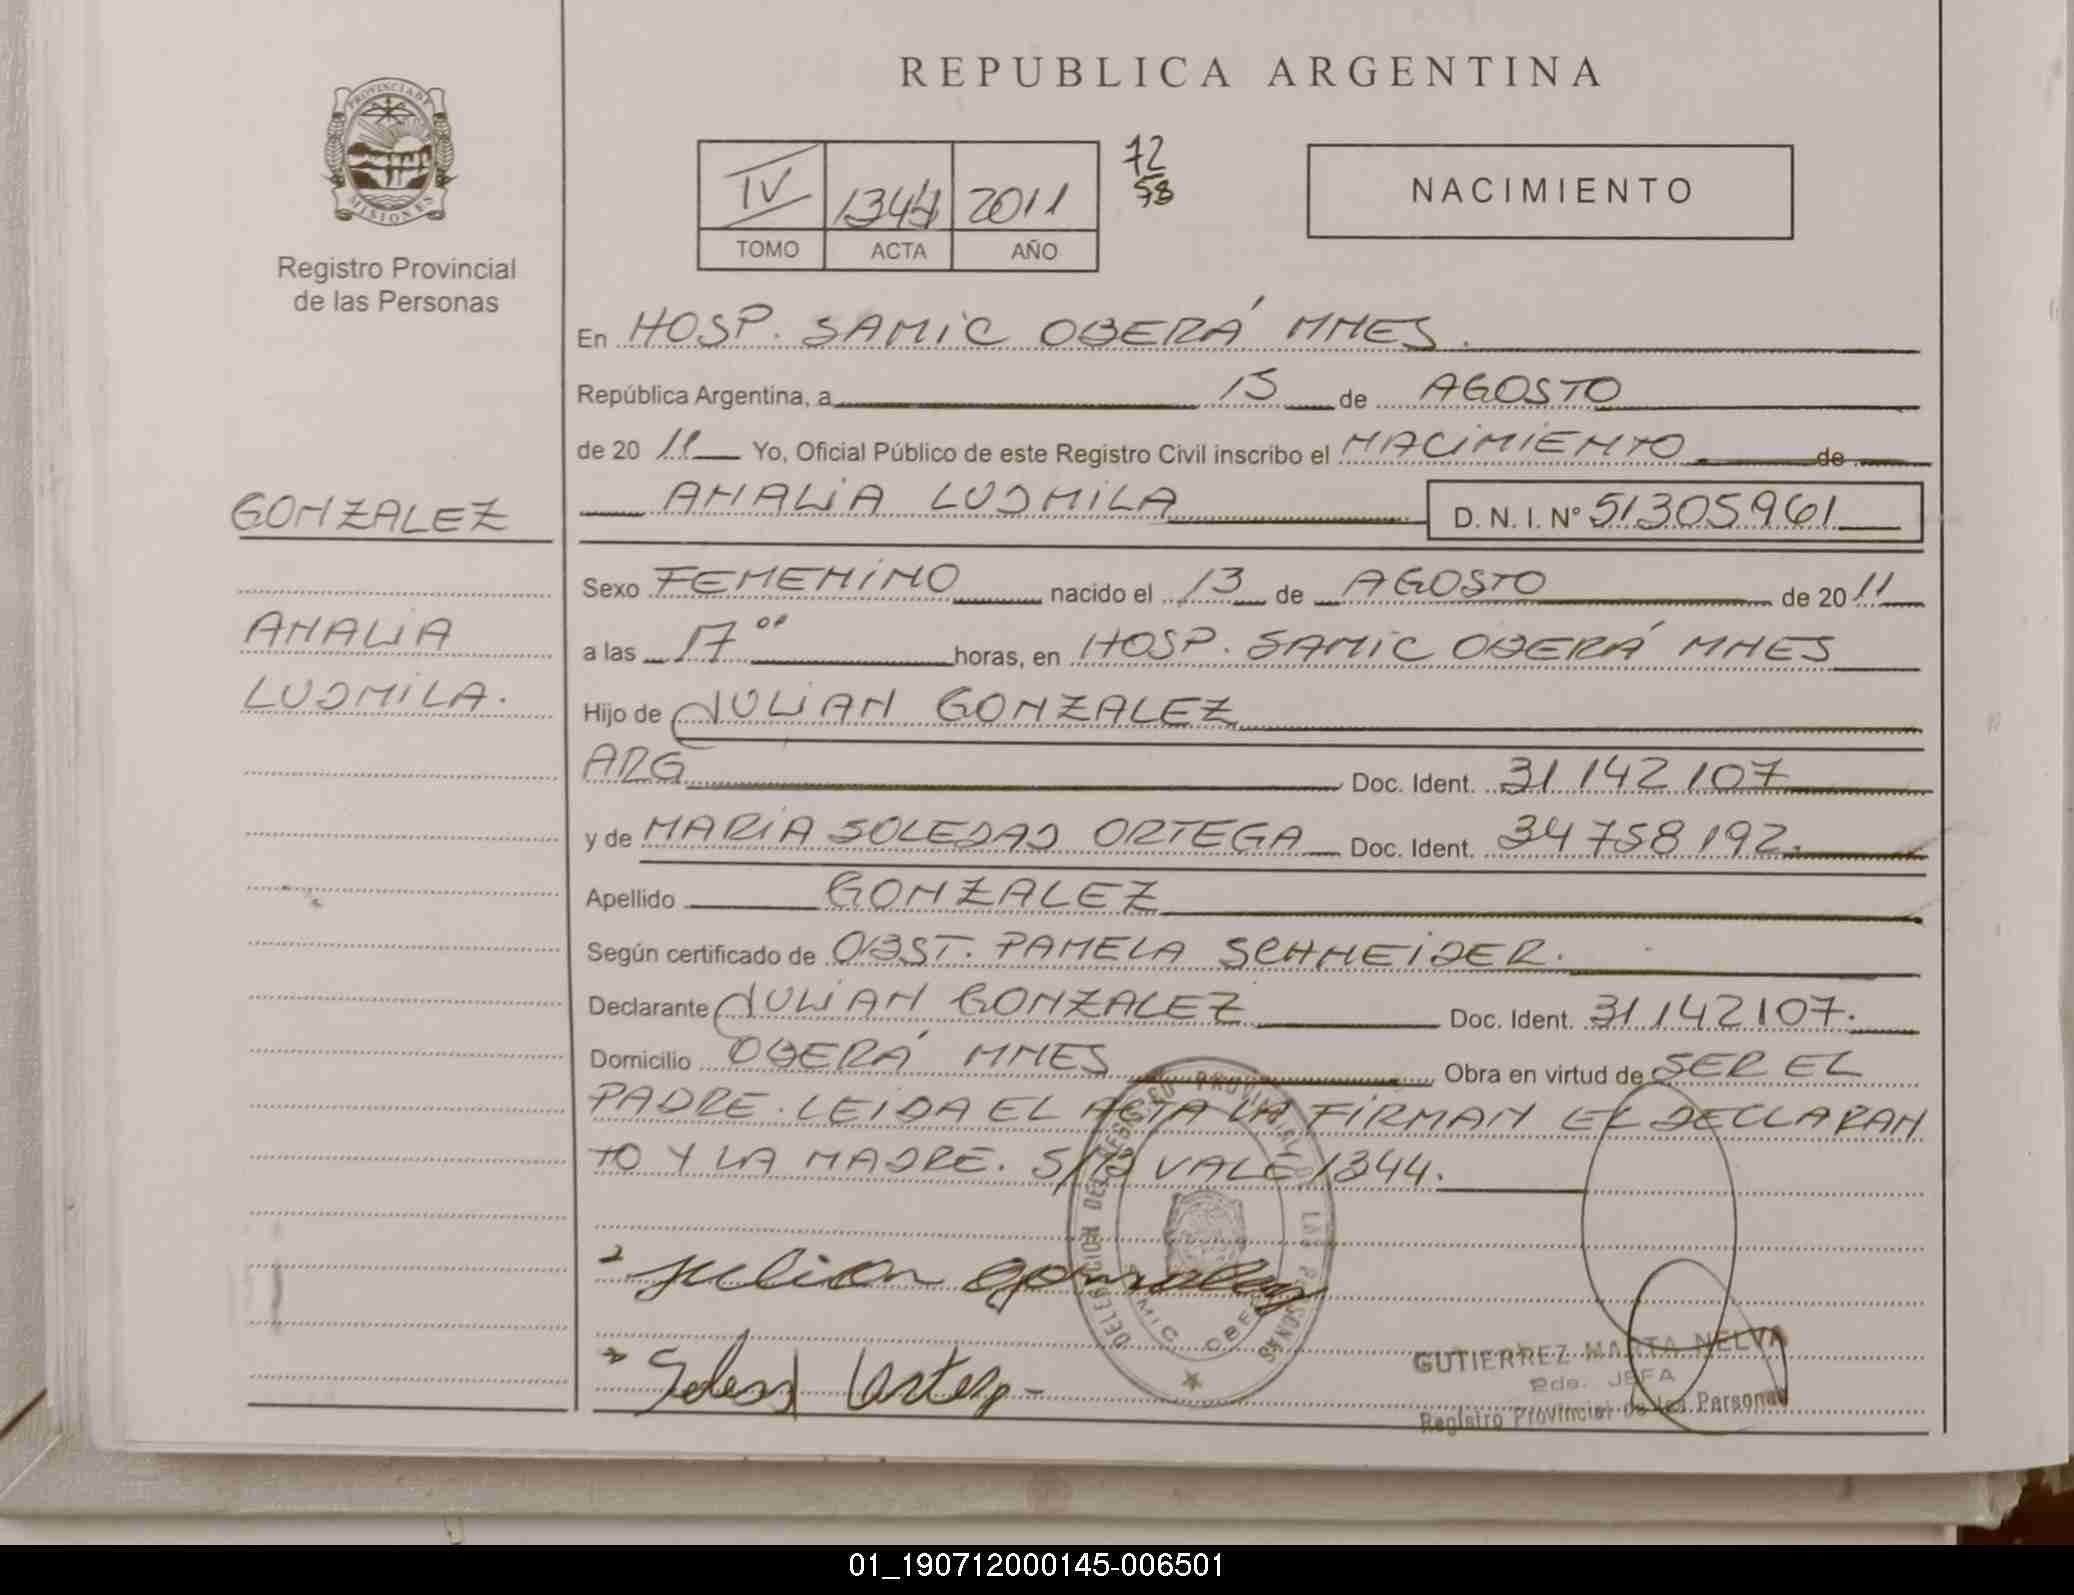 REPUBLICA ARGENTINA
PROVINCIA DE
MISIONES
Registro Provincial
de las Personas
IV 1344 2011
TOMO ACTA AÑO
72
58
NACIMIENTO
En HOSP. SAMIC OBERÁ MNES.
República Argentina, a 15 de AGOSTO
de 20 11 Yo, Oficial Público de este Registro Civil inscribo el NACIMIENTO de
AMALIA LUDMILA D. N. I. Nº 51305961
GONZALEZ
AMALIA
LUDMILA.
Sexo FEMENINO nacido el 13 de AGOSTO de 20 11
a las 17 00 horas, en HOSP. SAMIC OBERÁ MNES
Hijo de JULIAN GONZALEZ
ARG Doc. Ident. 31142107
y de MARIA SOLEDAD ORTEGA Doc. Ident. 34758192.
Apellido GONZALEZ
Según certificado de OBST. PAMELA SCHNEIDER.
Declarante JULIAN GONZALEZ Doc. Ident. 31142107.
Domicilio OBERÁ MNES Obra en virtud de SER EL
PADRE. LEIDA EL ACTA LA FIRMAN EL DECLARAN
TO Y LA MADRE. S/B VALE 1344.
Julian gonzalez
GUTIERREZ MARTA NELVA
2da. JEFA
Registro Provincial de las Personas
01_190712000145-006501